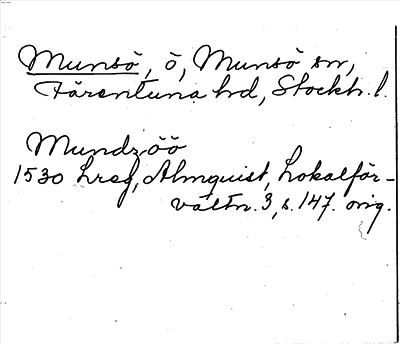 Munsö, ö, Munsö sn,
Färentuna hd, Stockh. l.
Mundzöö
1530 Lreg, Almquist, Lokalför-
valtn. 3, s. 147. orig.